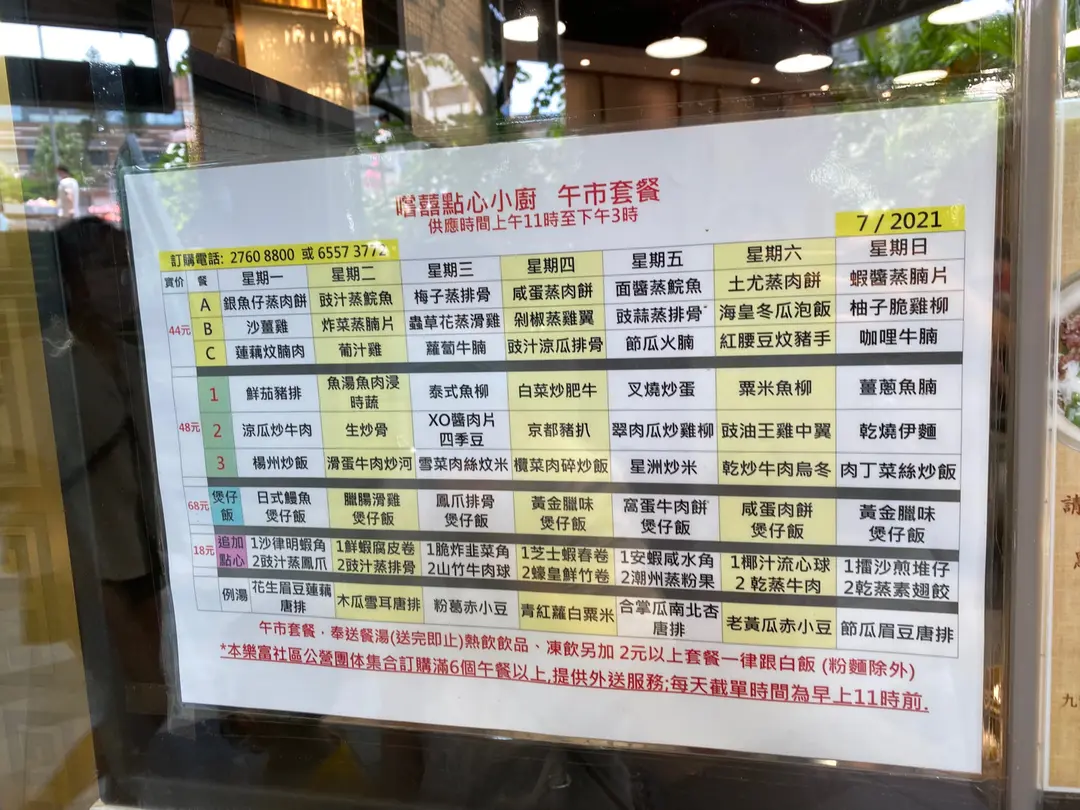 嚐囍點心小廚 午市套餐
供應時間上午11時至下午3時
7 / 2021
訂購電話: 2760 8800 或 6557 3772
實價 餐 星期一 星期二 星期三 星期四 星期五 星期六 星期日
44元
A 銀魚仔蒸肉餅 豉汁蒸鯇魚 梅子蒸排骨 咸蛋蒸肉餅 面醬蒸鯇魚 土尤蒸肉餅 蝦醬蒸腩片
B 沙薑雞 炸菜蒸腩片 蟲草花蒸滑雞 剁椒蒸雞翼 豉蒜蒸排骨 海皇冬瓜泡飯 柚子脆雞柳
C 蓮藕炆腩肉 葡汁雞 蘿蔔牛腩 豉汁涼瓜排骨 節瓜火腩 紅腰豆炆豬手 咖哩牛腩
48元
1 鮮茄豬排 魚湯魚肉浸時蔬 泰式魚柳 白菜炒肥牛 叉燒炒蛋 粟米魚柳 薑蔥魚腩
2 涼瓜炒牛肉 生炒骨 XO醬肉片四季豆 京都豬扒 翠肉瓜炒雞柳 豉油王雞中翼 乾燒伊麵
3 楊州炒飯 滑蛋牛肉炒河 雪菜肉絲炆米 欖菜肉碎炒飯 星洲炒米 乾炒牛肉烏冬 肉丁菜絲炒飯
68元 煲仔飯 日式鰻魚煲仔飯 臘腸滑雞煲仔飯 鳳爪排骨煲仔飯 黃金臘味煲仔飯 窩蛋牛肉餅煲仔飯 咸蛋肉餅煲仔飯 黃金臘味煲仔飯
18元 追加點心 1沙律明蝦角 1鮮蝦腐皮卷 1脆炸韭菜角 1芝士蝦春卷 1安蝦咸水角 1椰汁流心球 1擂沙煎堆仔
2豉汁蒸鳳爪 2豉汁蒸排骨 2山竹牛肉球 2蠔皇鮮竹卷 2潮州蒸粉果 2 乾蒸牛肉 2乾蒸素翅餃
例湯 花生眉豆蓮藕唐排 木瓜雪耳唐排 粉葛赤小豆 青紅蘿白粟米 合掌瓜南北杏唐排 老黃瓜赤小豆 節瓜眉豆唐排
午市套餐，奉送餐湯(送完即止)熱飲飲品、凍飲另加 2元以上套餐一律跟白飯 (粉麵除外)
*本樂富社區公營團体集合訂購滿6個午餐以上,提供外送服務;每天截單時間為早上11時前.